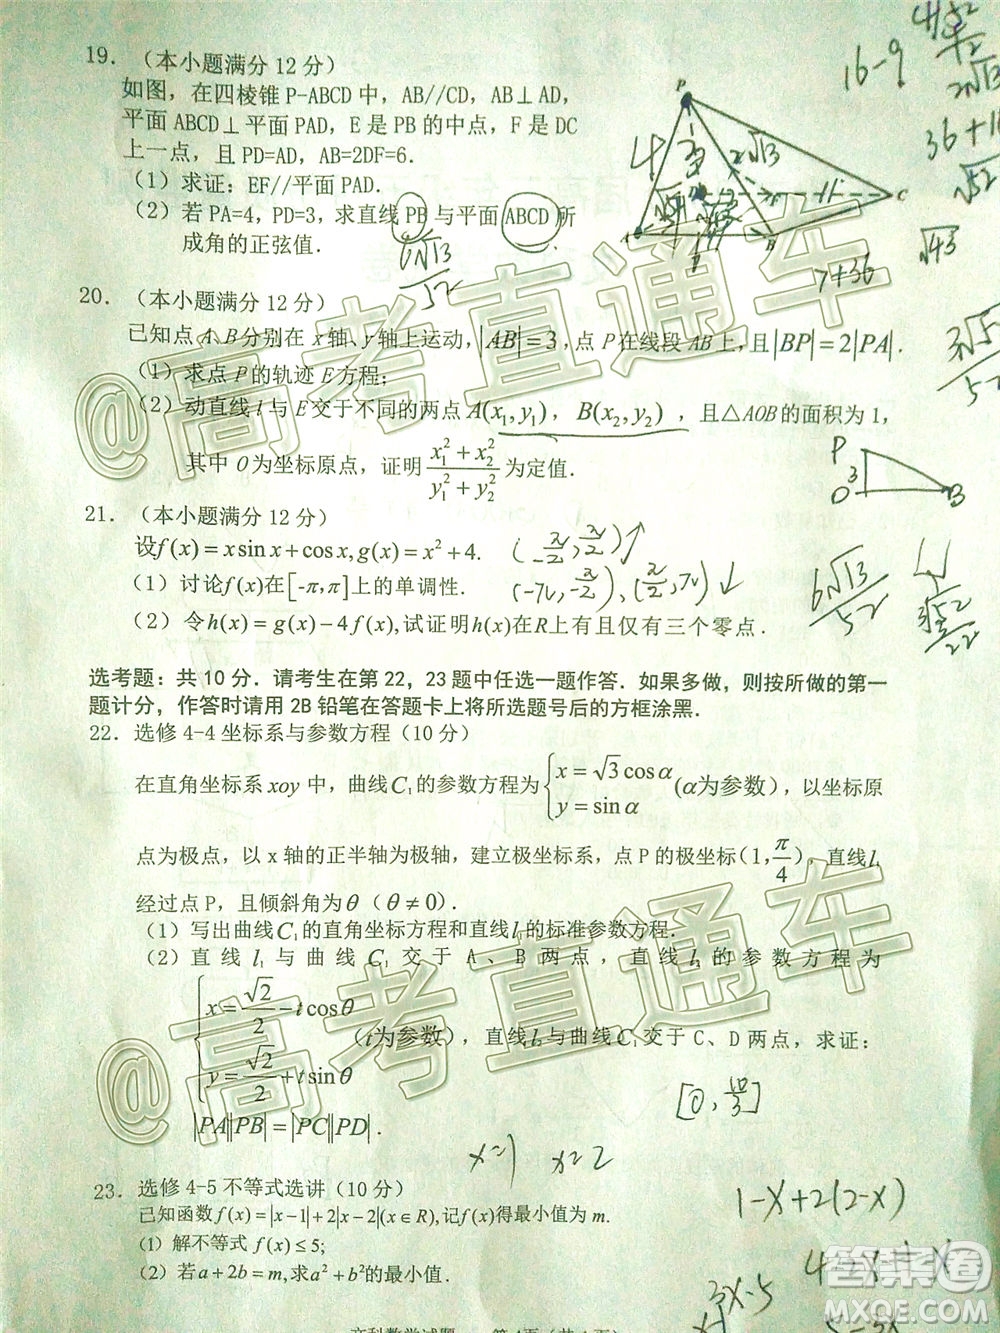 19. （本小题满分12分）
如图，在四棱锥P-ABCD中，AB//CD，AB⊥AD，
平面ABCD⊥平面PAD，E是PB的中点，F是DC
上一点，且PD=AD，AB=2DF=6.
（1）求证：EF//平面PAD.
（2）若PA=4，PD=3，求直线PB与平面ABCD所
成角的正弦值.
20. （本小题满分12分）
已知点A、B分别在x轴、y轴上运动，|AB|=3，点P在线段AB上，且|BP|=2|PA|.
（1）求点P的轨迹E方程；
（2）动直线l与E交于不同的两点A(x₁,y₁)，B(x₂,y₂)，且△AOB的面积为1，
其中O为坐标原点，证明(x₁²+x₂²)/(y₁²+y₂²)为定值.
21. （本小题满分12分）
设f(x)=xsinx+cosx,g(x)=x²+4.
（1）讨论f(x)在[-π,π]上的单调性.
（2）令h(x)=g(x)-4f(x),试证明h(x)在R上有且仅有三个零点.
选考题：共10分．请考生在第22，23题中任选一题作答．如果多做，则按所做的第一
题计分，作答时请用2B铅笔在答题卡上将所选题号后的方框涂黑．
22. 选修4-4坐标系与参数方程（10分）
在直角坐标系xoy中，曲线C₁的参数方程为{x=√3cosα
y=sinα (α为参数)，以坐标原
点为极点，以x轴的正半轴为极轴，建立极坐标系，点P的极坐标(1,π/4)，直线l₁
经过点P，且倾斜角为θ（θ≠0）.
（1）写出曲线C₁的直角坐标方程和直线l₁的标准参数方程.
（2）直线l₁与曲线C₁交于A、B两点，直线l₂的参数方程为
{x=√2/2-tcosθ
y=√2/2+tsinθ (t为参数)，直线l₂与曲线C₁交于C、D两点，求证：
|PA||PB|=|PC||PD|.
23. 选修4-5不等式选讲（10分）
已知函数f(x)=|x-1|+2|x-2|(x∈R),记f(x)得最小值为m.
(1) 解不等式f(x)≤5;
(2) 若a+2b=m,求a²+b²的最小值.
16-9
2√13
√52
√43
7+36
(-π/2,π/2)↑
(-π,-π/2),(π/2,π)↓
6√13/52
[0,10/3]
x=1 x=2
1-x+2(2-x)
3x-5
@高考直通车
@高考直通车
答案圈
MXQE.COM